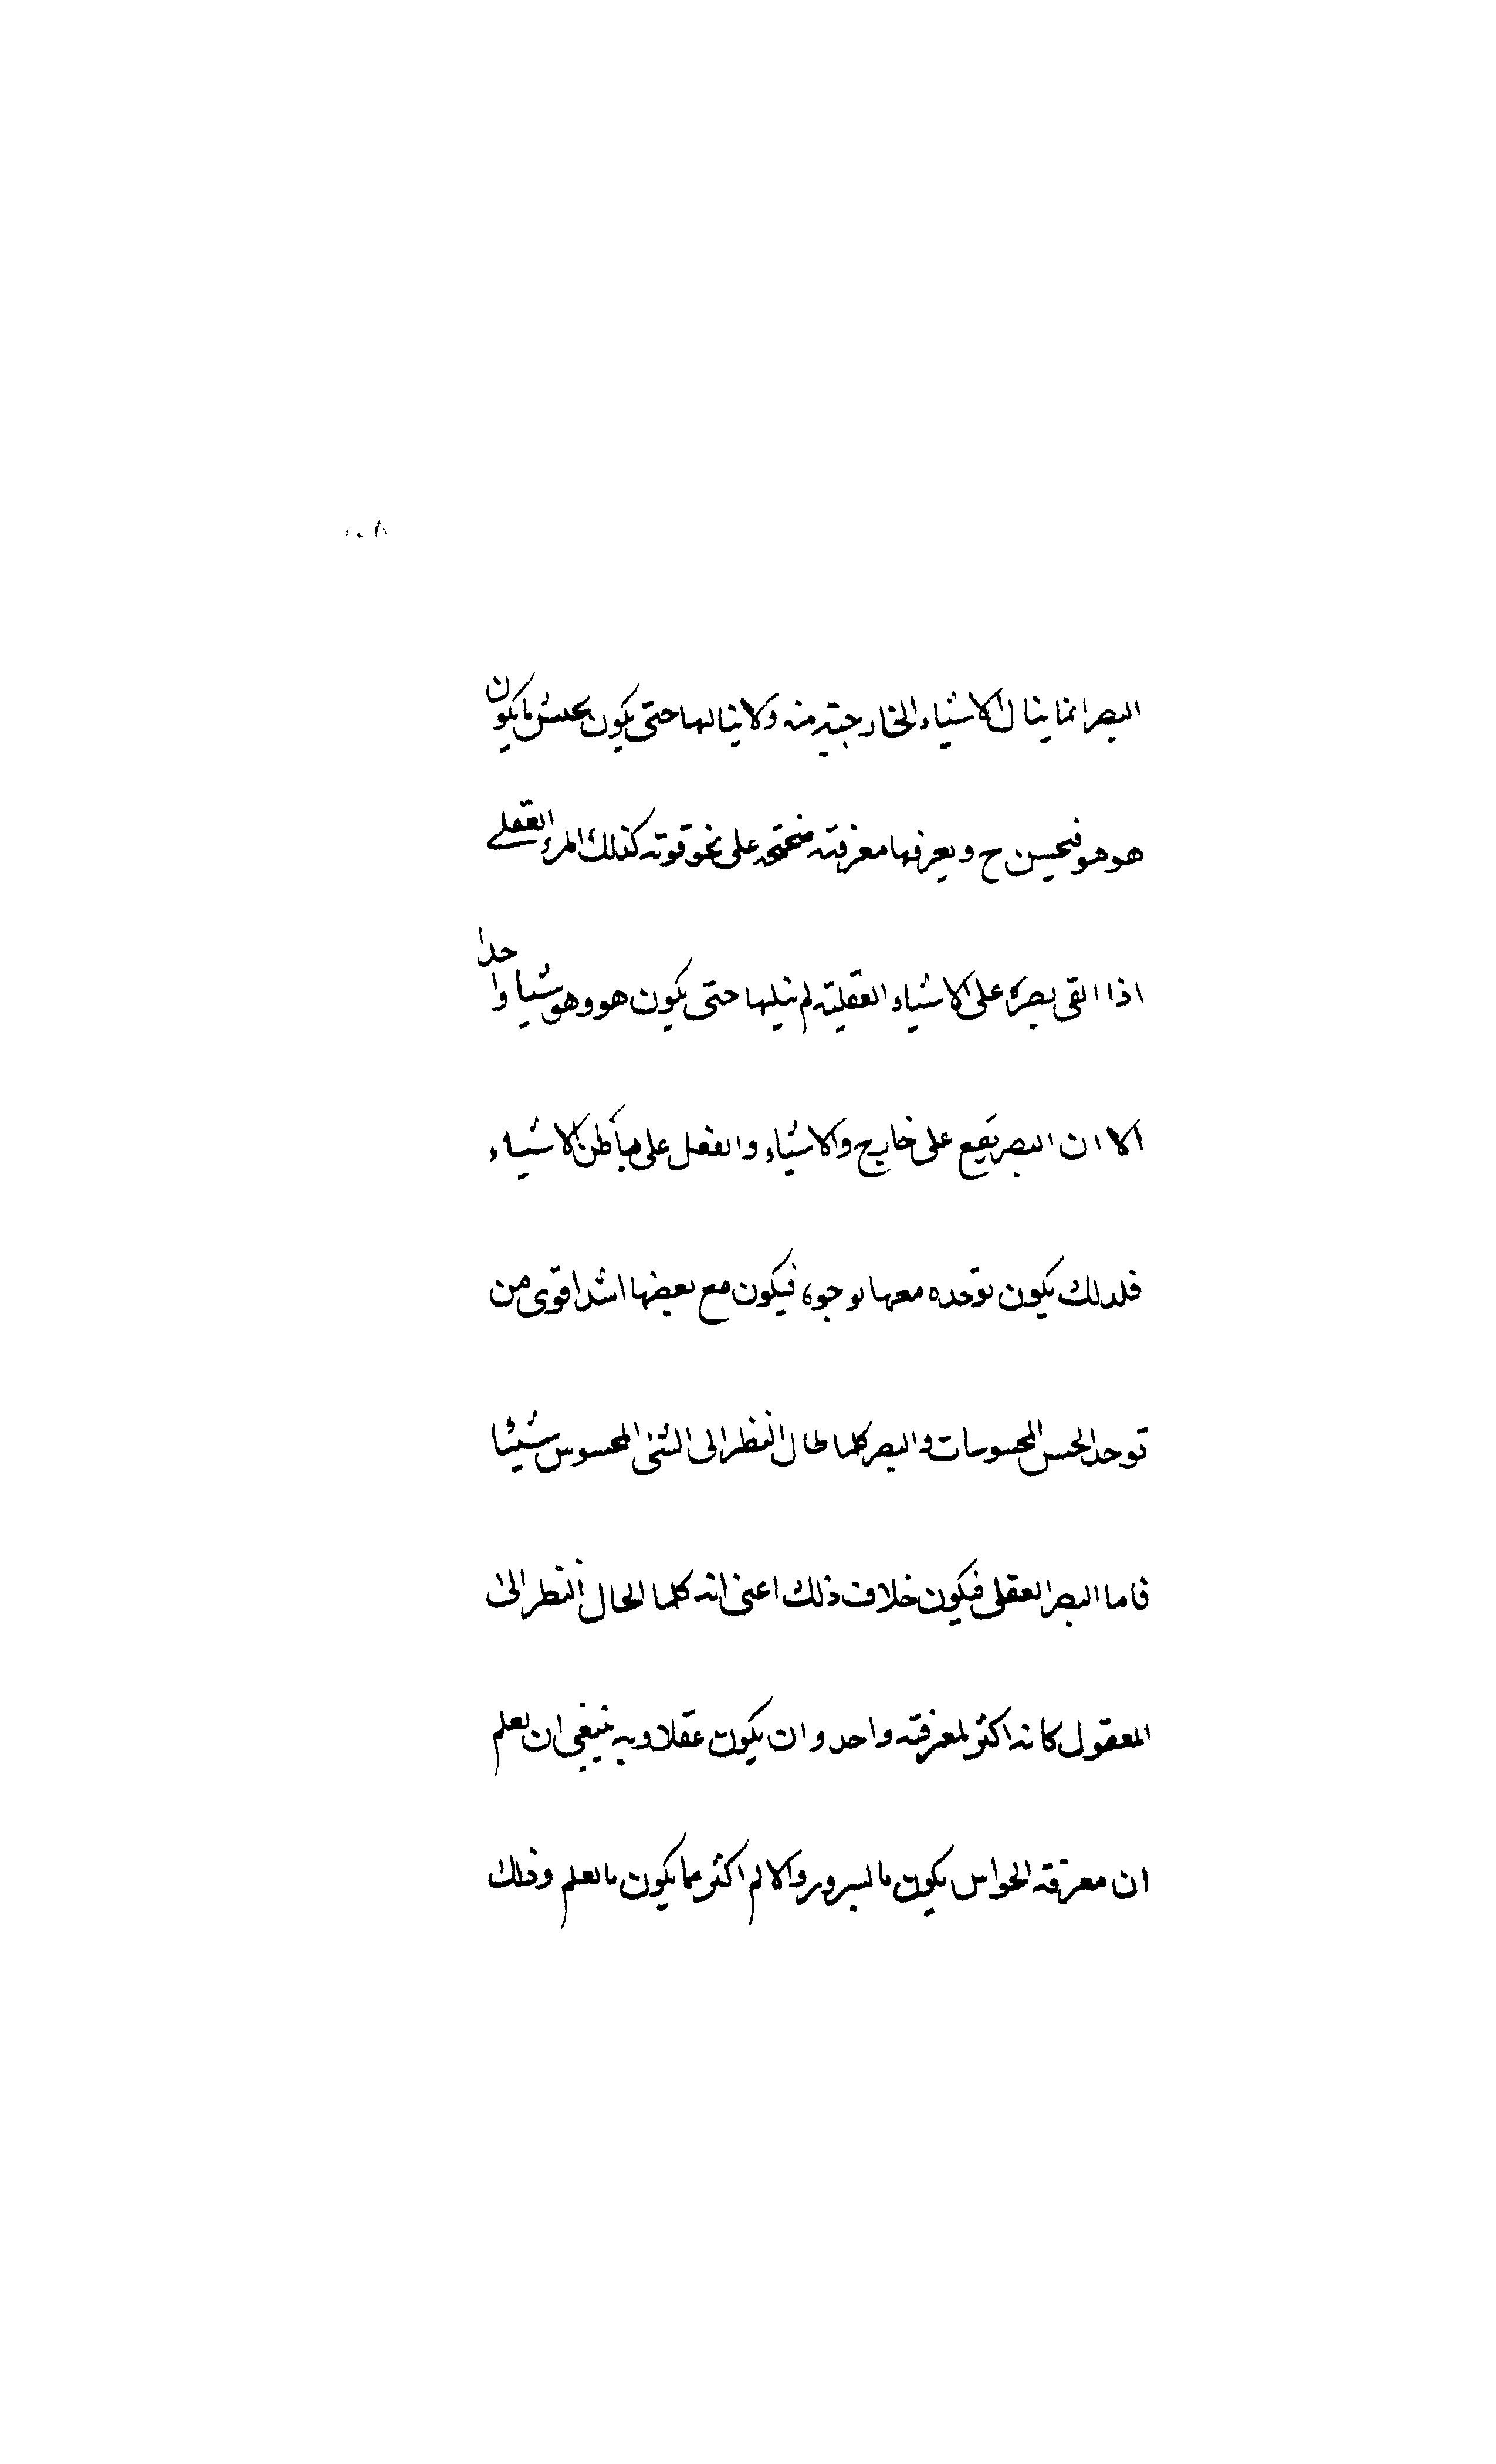 البصر انما ينال الاشياء الخارجية منه ولا ينالها حتى يكون بحيث ما يكون
هو هو فيحسن ح ويعرفها معرفته صحيحة على نحو قوته كذلك المرء العقلے
اذا القى بصره على الاشياء العقلية لم ينلها حتى يكون هو وهو شيا واحدا
الا ان البصر يقع على خارج والاشياء والعقل على باطن الاشياء
فلذلك يكون توحده معها بوجوه فيكون مع بعضها اشد اقوى من
توحد الحس المحسوسات والبصر كلما طال النظر الى الشئ المحسوس شيئا
فاما البصر العقلى فيكون خلاف ذلك اعنى انه كلما الحال النظر الى
المعقول كانه اكثر لمعرفته واحد وان يكون عقلا وبه ينبغى ان يعلم
ان معرفة الحواس يكون بالسرور والالم اكثر مما يكون بالعلم وذلك